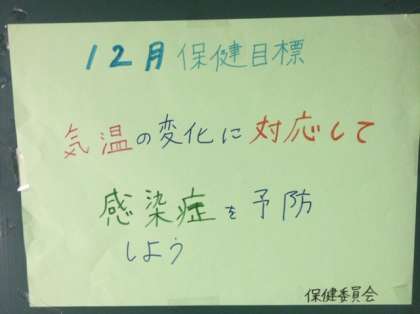 12月保健目標
気温の変化に対応して
感染症を予防
しよう
保健委員会